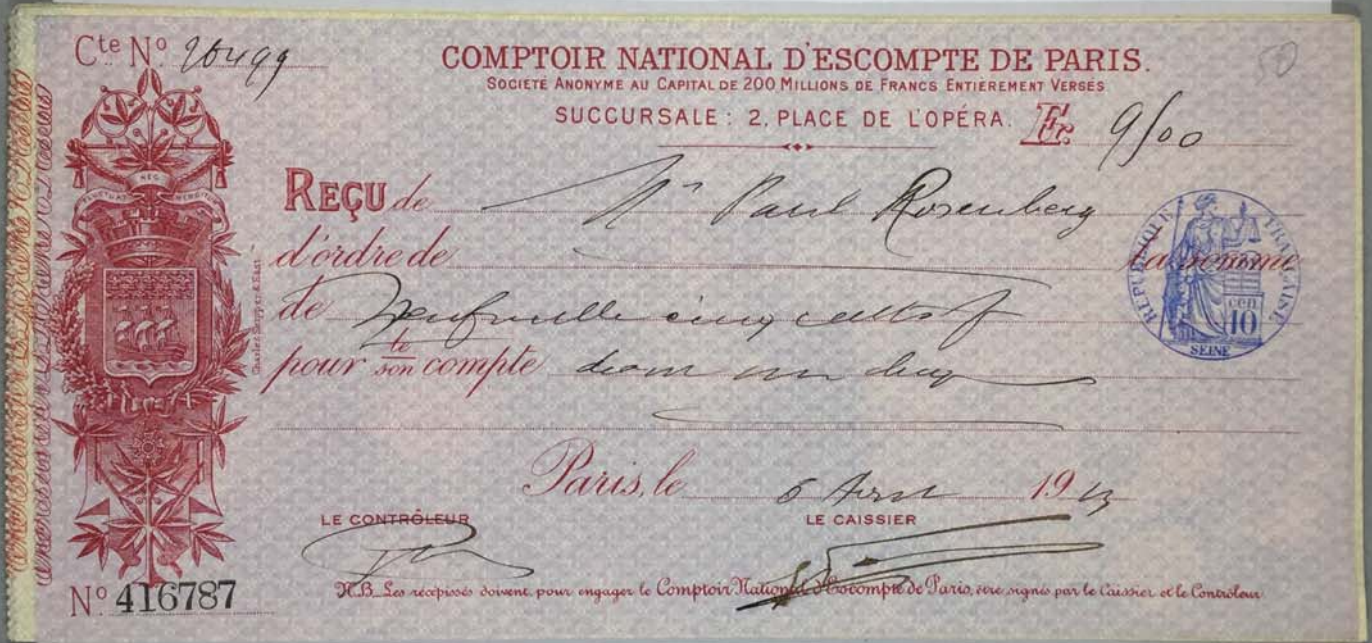 Cte No 20499
COMPTOIR NATIONAL D'ESCOMPTE DE PARIS.
50
SOCIÉTÉ ANONYME AU CAPITAL DE 200 MILLIONS DE FRANCS ENTIÈREMENT VERSÉS
SUCCURSALE : 2, PLACE DE L'OPÉRA. Fr. 9500
REÇU de Mr Paul Rosenberg
d'ordre de la somme
de Neuf mille cinq cents f
pour le son compte dont un
RÉPUBLIQUE FRANÇAISE
cen
10
SEINE
NEC
MERGITUR
FLUCTUAT
Charles Skipper & East.
Paris, le 5 1913
LE CONTRÔLEUR LE CAISSIER
No 416787 N.B. Les récépissés doivent pour engager le Comptoir National d'Escompte de Paris, être signés par le Caissier et le Contrôleur.